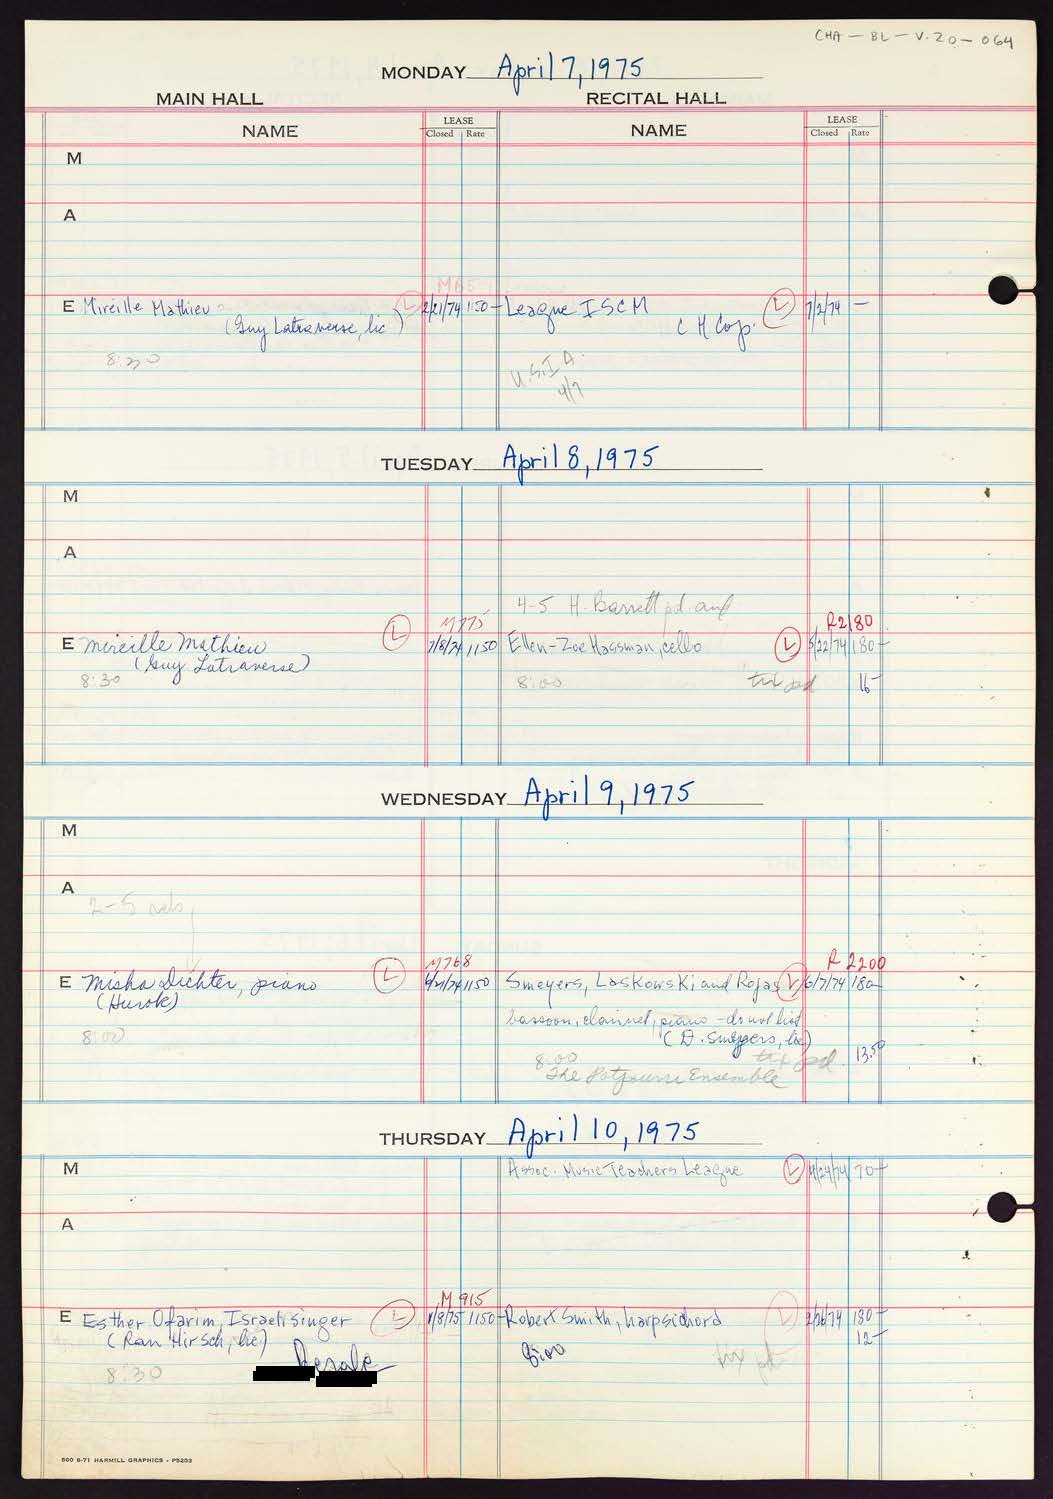 CHA-BL-V.20-064
MONDAY April 7, 1975
MAIN HALL RECITAL HALL
NAME LEASE Closed Rate NAME LEASE Closed Rate
M
A
E Mireille Mathieu L 2/21/74 1150- League ISCM L 7/2/74 —
(Guy Latraverse, lic) C H Cop.
8:30
U.S.I.A.
4/7
TUESDAY April 8, 1975
M
A
4-5 H. Barrett pd and
M775 R2180
E Mireille Mathieu L 7/8/74 1150 Ellen-Zoe Hassman, cello L 5/22/74 180-
(Guy Latraverse)
8:30 8:00 pd 16-
WEDNESDAY April 9, 1975
M
A
2-5
M768 R 2200
E Misha Dichter, piano L 1150 Smeyers, Laskowski and Rojas L 6/7/74 180-
(Hurok)
bassoon, clarinet, piano - do not list
8:00 (D. Smeyers, lic) 13.50
8:00 pd
The Ensemble
THURSDAY April 10, 1975
M Assoc. Music Teachers League L 4/24/74 70-
A
M 915
E Esther Ofarim, Israeli singer L 1/8/75 1150- Robert Smith, harpsichord L 2/26/74 180-
(Ran Hirsch, lic) 12-
8:30 8:00 tix pd
500 8-71 HARMILL GRAPHICS - P5203